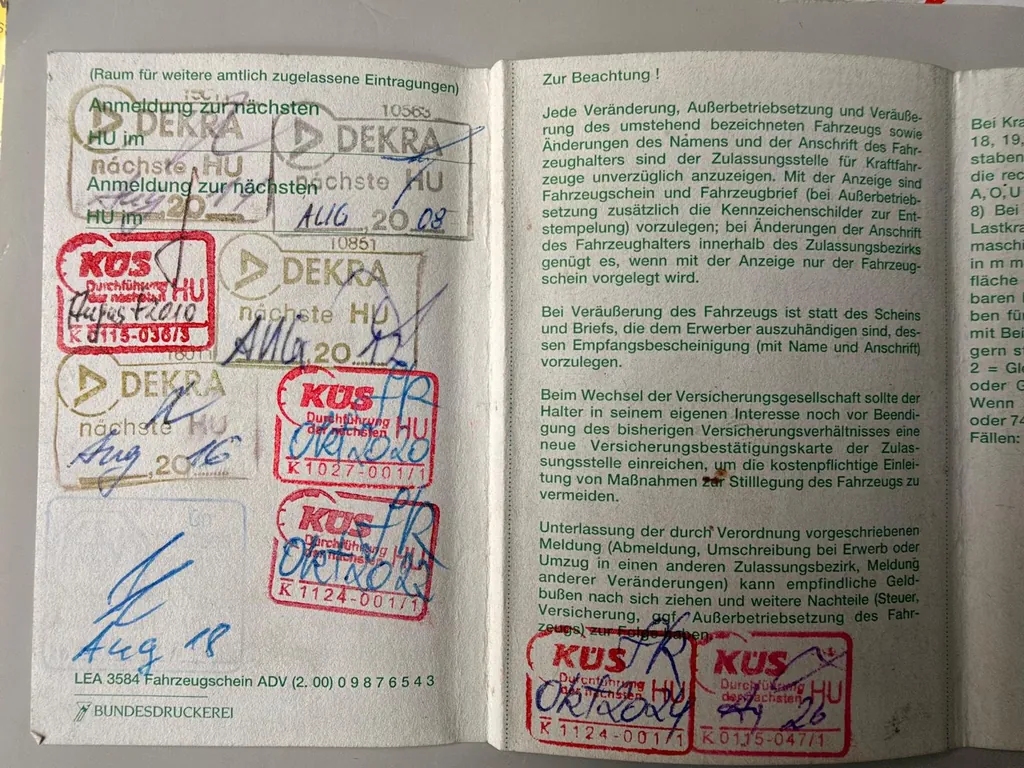 (Raum für weitere amtlich zugelassene Eintragungen)
Anmeldung zur nächsten
HU im
Anmeldung zur nächsten
HU im
DEKRA
nächste HU
Aug 20
10563
DEKRA
nächste HU
AUG, 20 08
KÜS
Durchführung
der nächsten HU
August 2010
10851
DEKRA
nächste HU
AUG, 20 12
DEKRA
nächste HU
Aug, 20 16
KÜS
Durchführung
der nächsten HU
OKT 2020
K 1027-001/1
KÜS
Durchführung
der nächsten HU
OKT 2022
K 1124-001/1
Aug 18
LEA 3584 Fahrzeugschein ADV (2. 00) 0 9 8 7 6 5 4 3
BUNDESDRUCKEREI
Zur Beachtung !
Jede Veränderung, Außerbetriebsetzung und Veräuße-
rung des umstehend bezeichneten Fahrzeugs sowie
Änderungen des Namens und der Anschrift des Fahr-
zeughalters sind der Zulassungsstelle für Kraftfahr-
zeuge unverzüglich anzuzeigen. Mit der Anzeige sind
Fahrzeugschein und Fahrzeugbrief (bei Außerbetrieb-
setzung zusätzlich die Kennzeichenschilder zur Ent-
stempelung) vorzulegen; bei Änderungen der Anschrift
des Fahrzeughalters innerhalb des Zulassungsbezirks
genügt es, wenn mit der Anzeige nur der Fahrzeug-
schein vorgelegt wird.
Bei Veräußerung des Fahrzeugs ist statt des Scheins
und Briefs, die dem Erwerber auszuhändigen sind, des-
sen Empfangsbescheinigung (mit Name und Anschrift)
vorzulegen.
Beim Wechsel der Versicherungsgesellschaft sollte der
Halter in seinem eigenen Interesse noch vor Beendi-
gung des bisherigen Versicherungsverhältnisses eine
neue Versicherungsbestätigungskarte der Zulas-
sungsstelle einreichen, um die kostenpflichtige Einlei-
tung von Maßnahmen zur Stilllegung des Fahrzeugs zu
vermeiden.
Unterlassung der durch Verordnung vorgeschriebenen
Meldung (Abmeldung, Umschreibung bei Erwerb oder
Umzug in einen anderen Zulassungsbezirk, Meldung
anderer Veränderungen) kann empfindliche Geld-
bußen nach sich ziehen und weitere Nachteile (Steuer,
Versicherung, ggf. Außerbetriebsetzung des Fahr-
zeugs) zur Folge haben.
KÜS
Durchführung
der nächsten HU
OKT 2024
K 1124-001/1
KÜS
Durchführung
der nächsten HU
26
K 0115-047/1
Bei Kra
18, 19,
staben
die rec
A, O, U
8) Bei
Lastkra
maschi
in m m
fläche
baren
ben für
mit Bei
gern s
2 = Gle
oder G
Wenn
oder 74
Fällen: